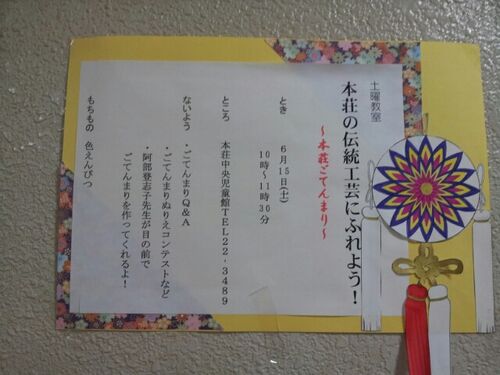 土曜教室
本荘の伝統工芸にふれよう！
～本荘ごてんまり～
とき　６月１５日(土)
１０時～１１時３０分
ところ　本荘中央児童館ＴＥＬ２２‐３４８９
ないよう　・ごてんまりＱ＆Ａ
・ごてんまりぬりえコンテストなど
・阿部登志子先生が目の前で
ごてんまりを作ってくれるよ！
もちもの　色えんぴつ